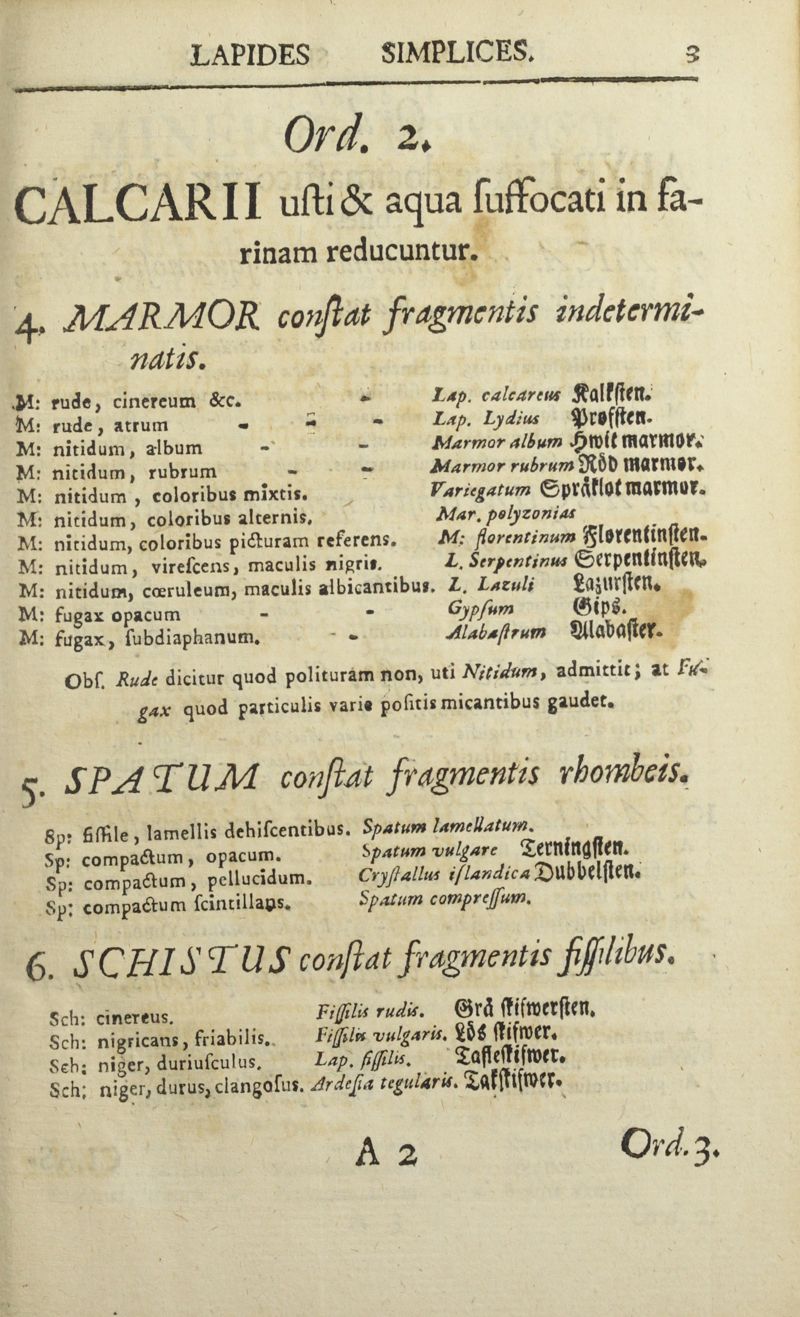 LAPIDES SIMPLICES. 3
Ord. 2.
CALCARII uſti & aqua ſuffocati in fa-
rinam reducuntur.
4. MARMOR conſtat fragmentis indetermi-
natis.
M: rude, cinereum &c. - Lap. calcareus Kalkſten.
M: rude, atrum - - - Lap. Lydius Profſten.
M: nitidum, album - - Marmor album Hwit marmor.
M: nitidum, rubrum - - Marmor rubrum Röd marmor.
M: nitidum, coloribus mixtis. Variegatum Spräklot marmor.
M: nitidum, coloribus alternis. Mar. polyzonias
M: nitidum, coloribus picturam referens. M: florentinum Florentinſten.
M: nitidum, vireſcens, maculis nigris. L. Serpentinus Serpentinſten.
M: nitidum, cœruleum, maculis albicantibus. L. Lazuli Laſurſten.
M: fugax opacum - - Gypſum Gips.
M: fugax, ſubdiaphanum. - - Alabaſtrum Alabaſter.
Obſ. Rude dicitur quod polituram non, uti Nitidum, admittit; at Fu-
gax quod particulis varie poſitis micantibus gaudet.
5. SPATUM conſtat fragmentis rhombeis.
Sp: fiſſile, lamellis dehiſcentibus. Spatum lamellatum.
Sp: compactum, opacum. Spatum vulgare Terningſten.
Sp: compactum, pellucidum. Cryſtallus iſlandica Dubbelſten.
Sp: compactum ſcintillans. Spatum compreſſum.
6. SCHISTUS conſtat fragmentis fiſſilibus.
Sch: cinereus. Fiſſilis rudis. Grå ſkifwerſten.
Sch: nigricans, friabilis. Fiſſilis vulgaris. Lös ſkifwer.
Sch: niger, duriuſculus. Lap. fiſſilis. Tafleſkifwer.
Sch: niger, durus, clangoſus. Ardeſia tegularis. Takſkifwer.
A 2 Ord. 3.